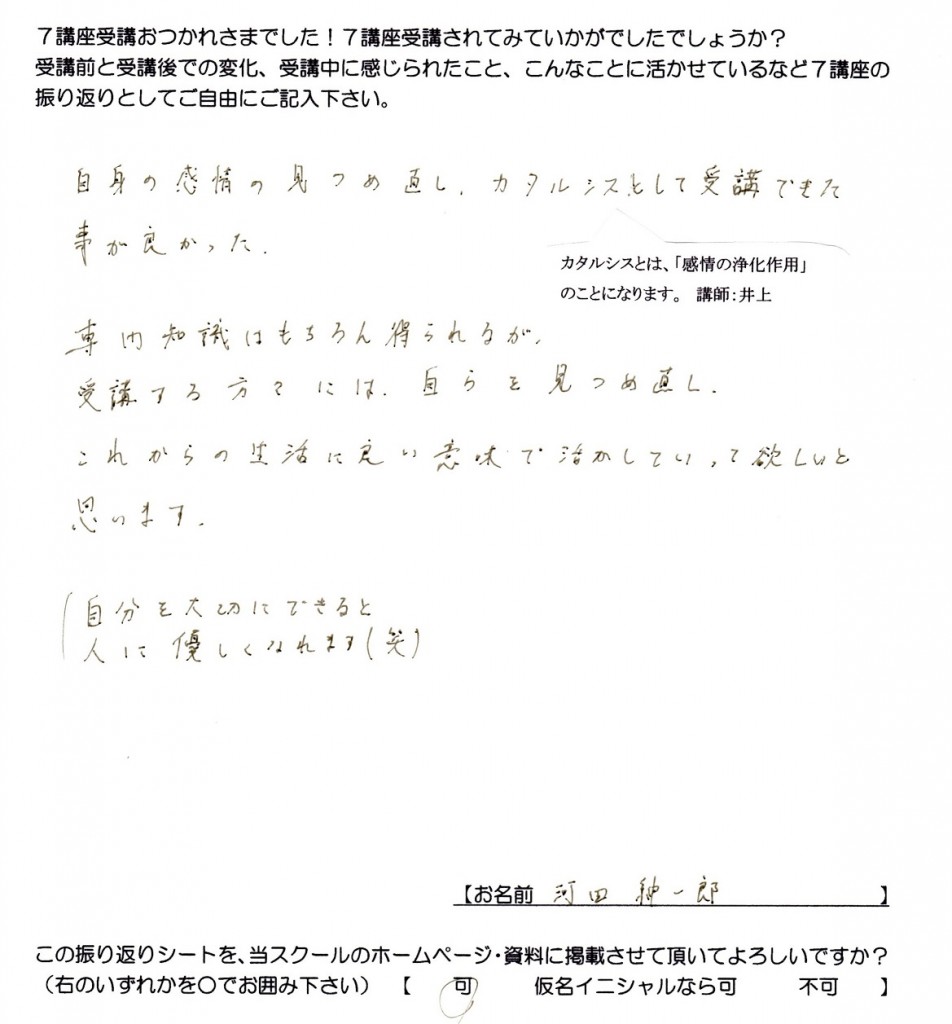 ７講座受講おつかれさまでした！７講座受講されてみていかがでしたでしょうか？
受講前と受講後での変化、受講中に感じられたこと、こんなことに活かせているなど７講座の
振り返りとしてご自由にご記入下さい。
自身の感情の見つめ直し、カタルシスとして受講できた
事が良かった。
カタルシスとは、「感情の浄化作用」
のことになります。 講師：井上
専門知識はもちろん得られるが、
受講する方々には、自らを見つめ直し、
これからの生活に良い意味で活かしていって欲しいと
思います。
(自分を大切にできると
人に優しくなれます(笑)
【お名前 河田 紳一郎 】
この振り返りシートを、当スクールのホームページ・資料に掲載させて頂いてよろしいですか？
（右のいずれかを〇でお囲み下さい）【 可 仮名イニシャルなら可 不可 】